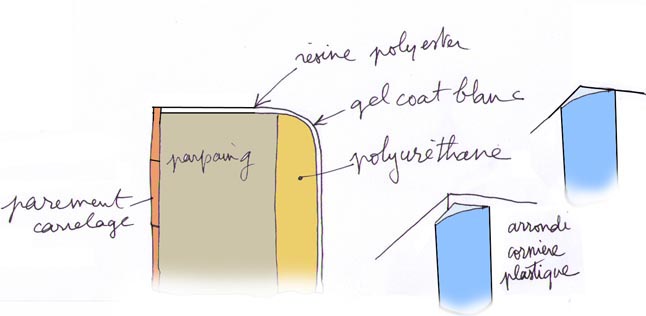 résine polyester
gel coat blanc
parpaing
polyuréthane
parement
carrelage
arrondi
cornière
plastique